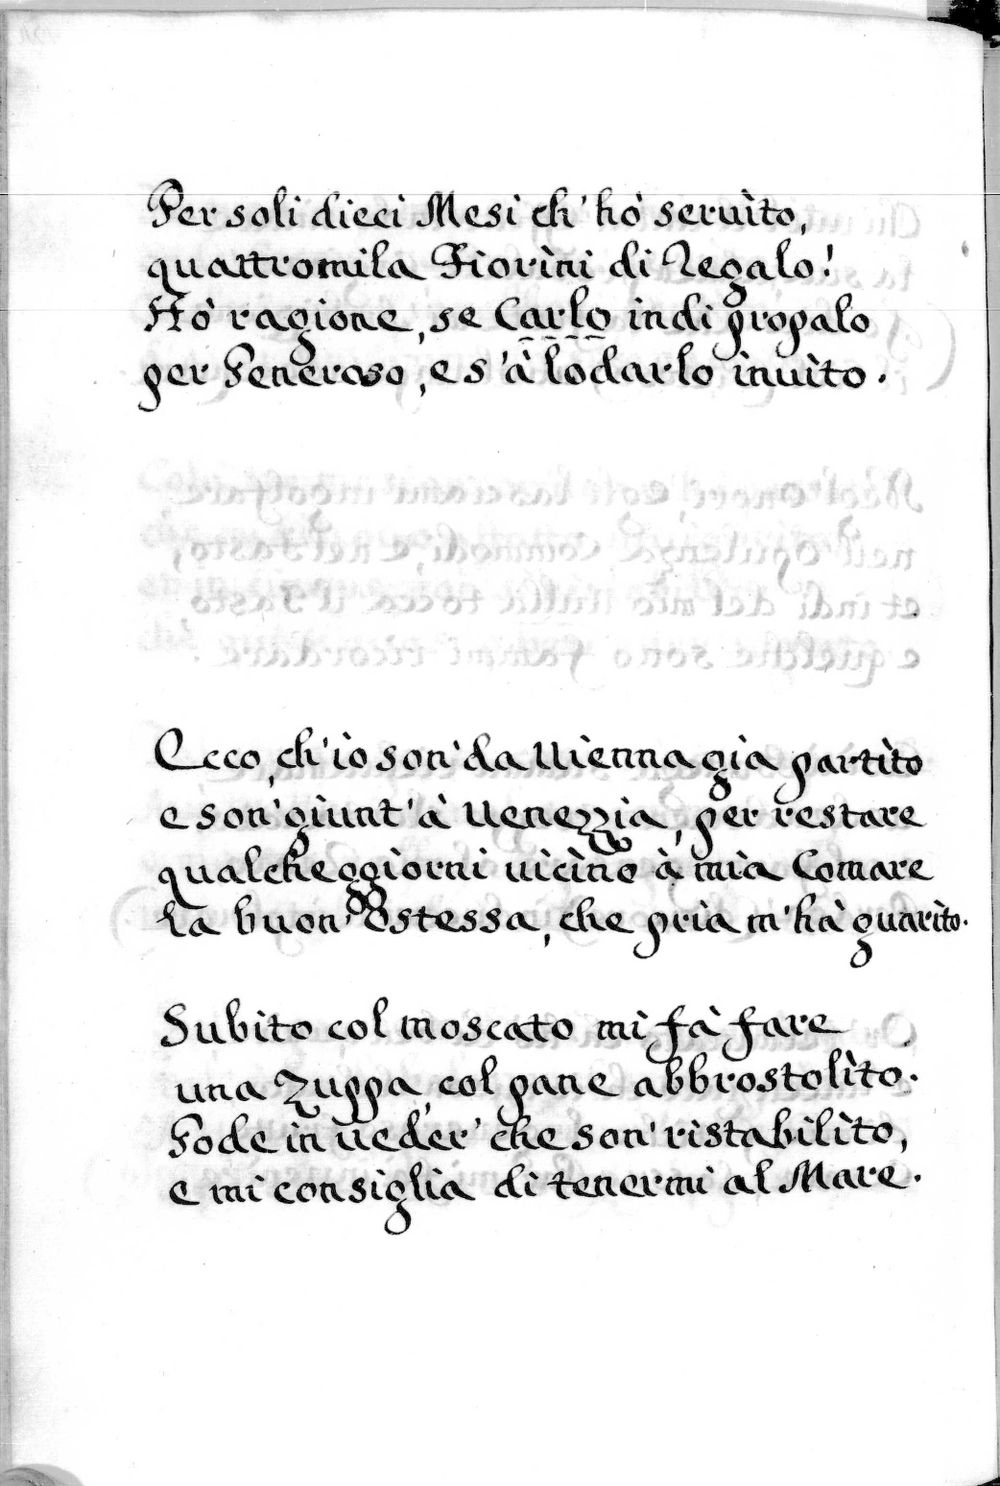 Per soli dieci Mesi ch'hò seruìto,
quattromila Fiorìni di Regalo!
Hò ragione, se Carlo indi propalo
per Generoso, e s'à lodarlo inuìto.
Ecco, ch'ìo son' da Uienna già partìto
e son' giunt' à Uenezzia, per restare
qualche ggiorni uicìno à mìa Comare
la buon' Ostessa, che prìa m'hà guarìto.
Subìto col moscato mì fà fare
una Zuppa, col pane abbrostolìto.
Gode in ueder' che son' ristabilìto,
e mi consiglia di tenermi al Mare.